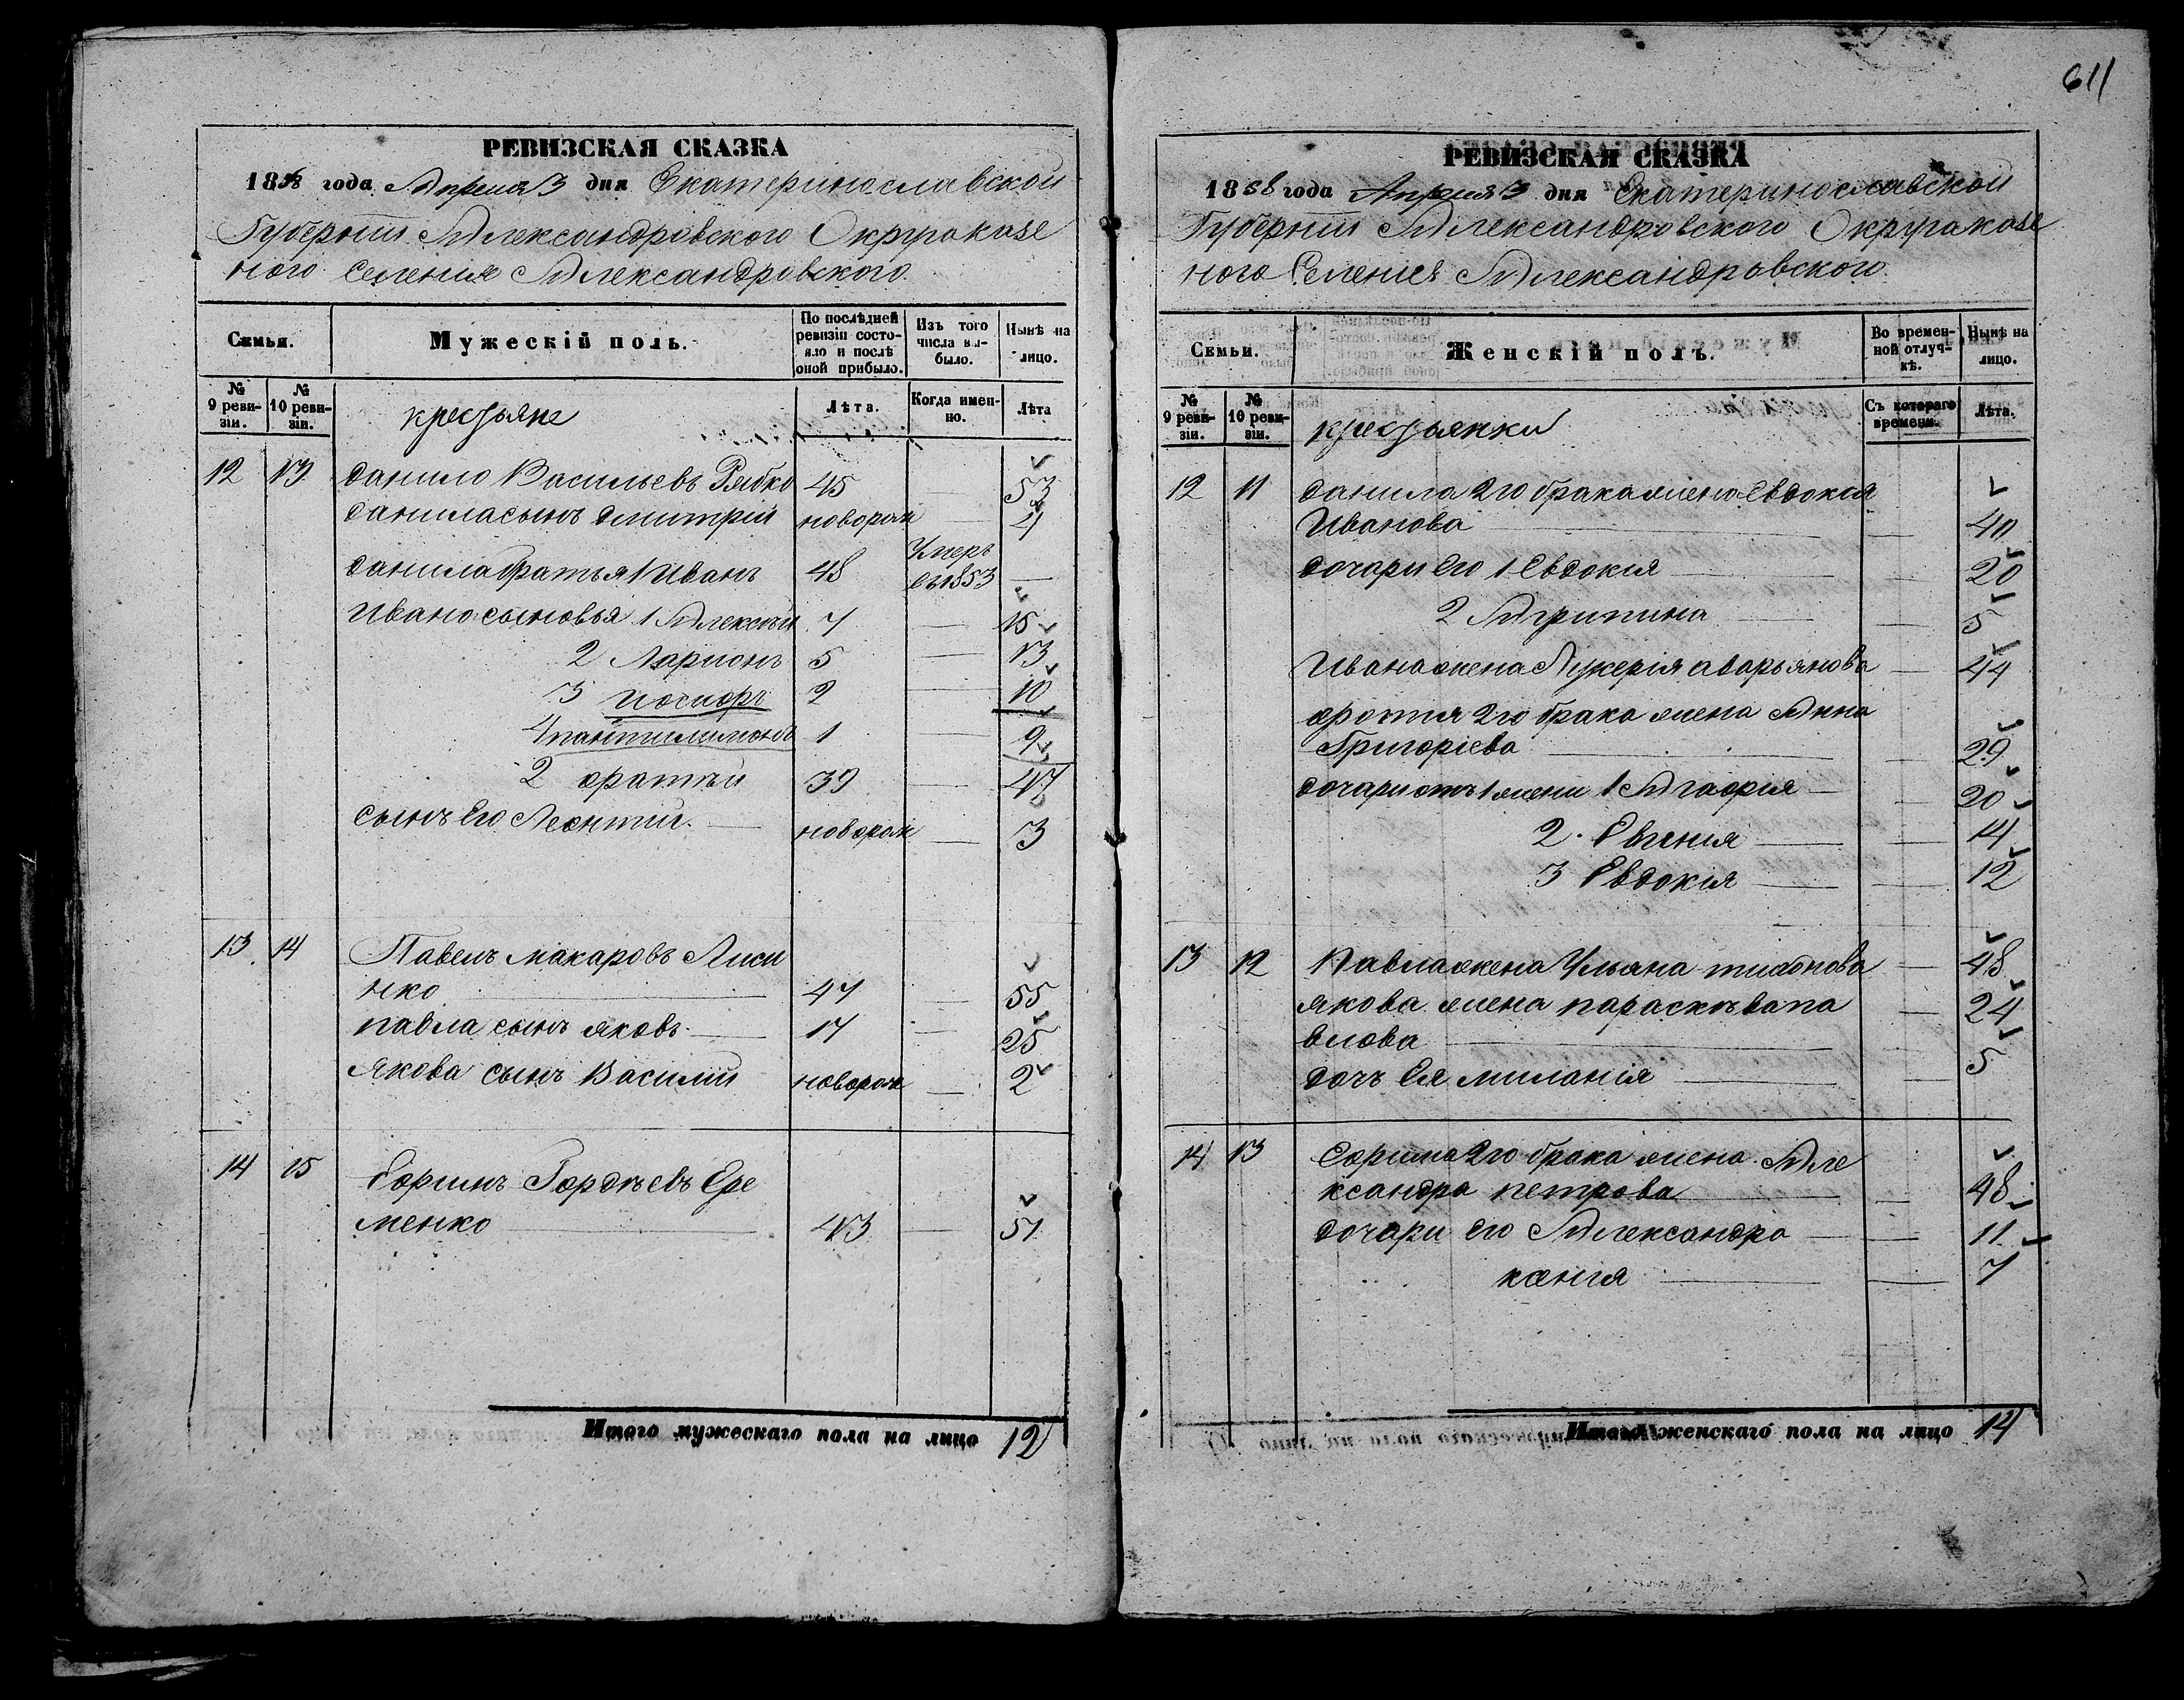 611
РЕВИЗСКАЯ СКАЗКА
1858 года Апреля 3 дня Екатеринославской
Губернии Александровского Округа казе
ного Селения Александровского
Семьи. Мужескій полъ. По послѣдней ревизіи состояло и послѣ оной прибыло. Изъ того числа выбыло. Нынѣ на лицо.
№ 9 ревизіи. № 10 ревизіи. крестьяне Лѣта. Когда именно. Лѣта
12 13 Данило Васильевъ Рябко 45 53
Данила сынъ Дмитрий новорож 4
Данила братья 1 Иванъ 48 Умеръ въ 1853
Ивана сыновья 1 Алексѣй 7 15
2 Ларионъ 5 13
3 Иосифъ 2 10
4 пантилимонъ 1 9
2 Фратѣй 39 47
сынъ Его Леонтий новорож 3
13 14 Павелъ Макаровъ Лиси
нко 47 55
павла сынъ яковъ 17 25
Якова сынъ Василий новорож 2
14 15 Ефимъ Гордѣевъ Ере
менко 43 51
Итого мужескаго пола на лицо 12
РЕВИЗСКАЯ СКАЗКА
1858 года Апреля 3 дня Екатеринославской
Губернии Александровского Округа казе
ного Селения Александровского
Семьи. Женскій полъ. Во временной отлучкѣ. Нынѣ на лицо.
№ 9 ревизіи. № 10 ревизіи. крестьянки Съ котораго времени. Лѣта.
12 11 Данила 2го брака жена Евдокия
Иванова 40
дочери Его 1 Евдокія 20
2 Агрипина 5
Ивана жена Лукерія аварьянова 44
2го брака жена Анна
Григоріева 29
дочери отъ 1 жени 1 Агафия 20
2 Евгения 14
3 Евдокия 12
13 12 Павла жена Ульяна 48
якова жена параскѣва па
влова 24
дочь Ея миланія 5
14 13 Ефима 2го брака жена Але
ксандра петрова 48
дочери его Александра 11
ксения 7
Итого женскаго пола на лицо 14